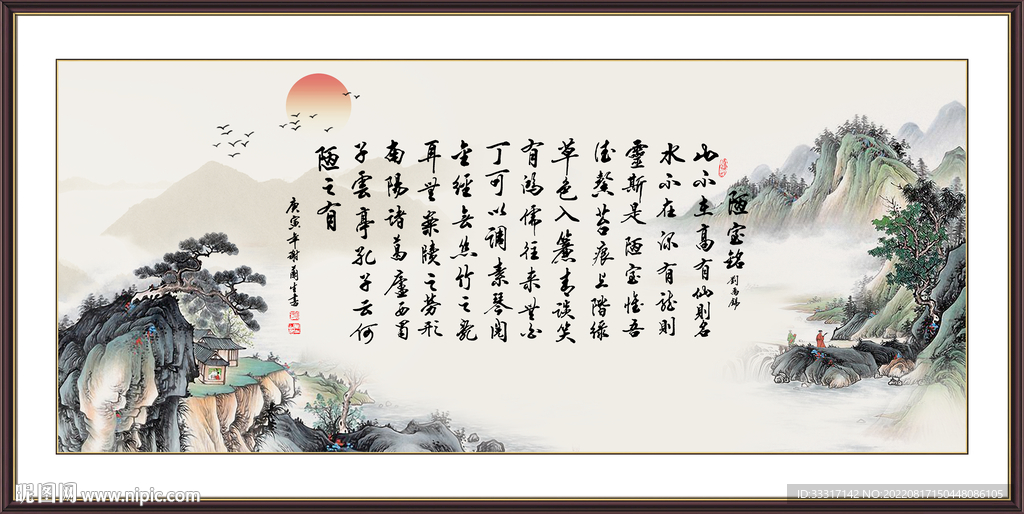 陋室銘
劉禹錫
山不在高有仙則名
水不在深有龍則
靈斯是陋室惟吾
德馨苔痕上階綠
草色入簾青談笑
有鴻儒往来無白
丁可以調素琴閱
金經無絲竹之亂
耳無案牘之勞形
南陽諸葛廬西蜀
子雲亭孔子云何
陋之有
庚寅年謝蘭生書
昵图网 www.nipic.com
ID:33317142 NO:20220817150448086105